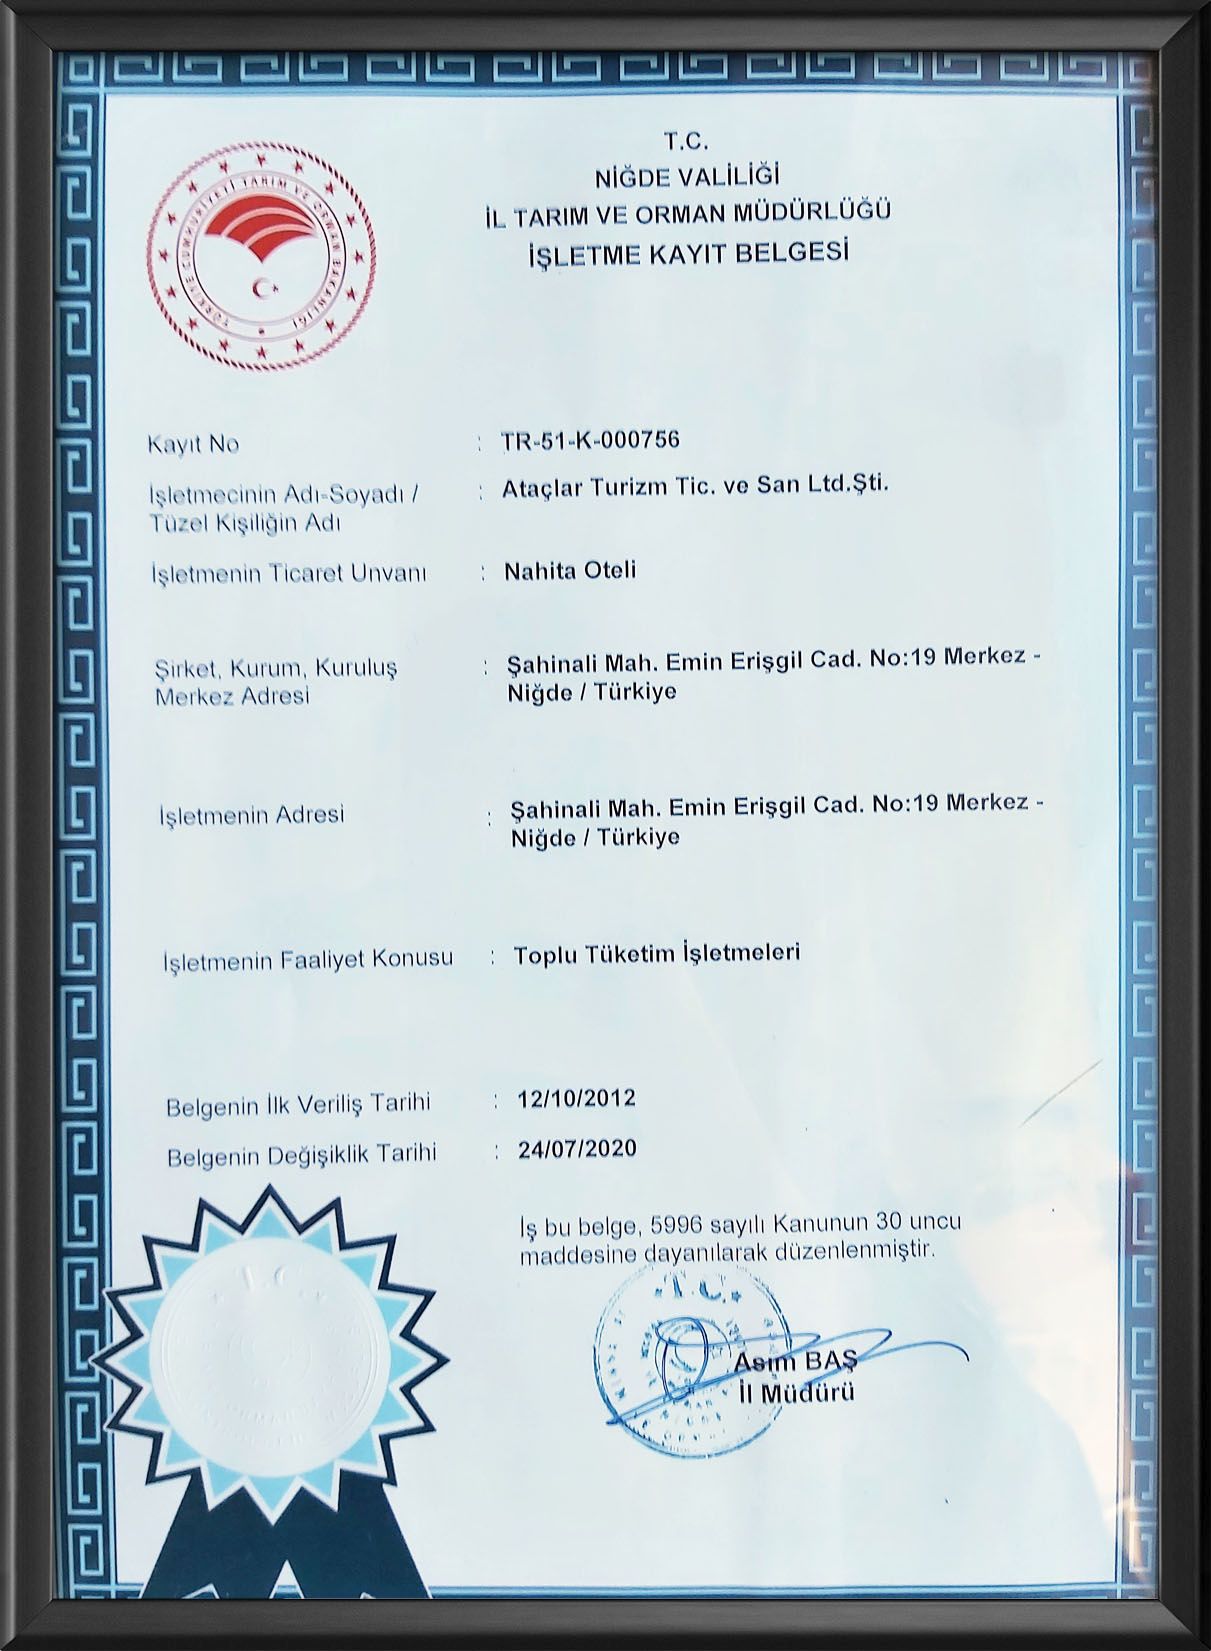 T.C.
NİĞDE VALİLİĞİ
İL TARIM VE ORMAN MÜDÜRLÜĞÜ
İŞLETME KAYIT BELGESİ
TÜRKİYE CUMHURİYETİ TARIM VE ORMAN BAKANLIĞI
Kayıt No : TR-51-K-000756
İşletmecinin Adı-Soyadı / : Ataçlar Turizm Tic. ve San Ltd.Şti.
Tüzel Kişiliğin Adı
İşletmenin Ticaret Unvanı : Nahita Oteli
Şirket, Kurum, Kuruluş : Şahinali Mah. Emin Erişgil Cad. No:19 Merkez -
Merkez Adresi Niğde / Türkiye
İşletmenin Adresi : Şahinali Mah. Emin Erişgil Cad. No:19 Merkez -
Niğde / Türkiye
İşletmenin Faaliyet Konusu : Toplu Tüketim İşletmeleri
Belgenin İlk Veriliş Tarihi : 12/10/2012
Belgenin Değişiklik Tarihi : 24/07/2020
İş bu belge, 5996 sayılı Kanunun 30 uncu
maddesine dayanılarak düzenlenmiştir.
T.C.
Asım BAŞ
İl Müdürü
T.C.